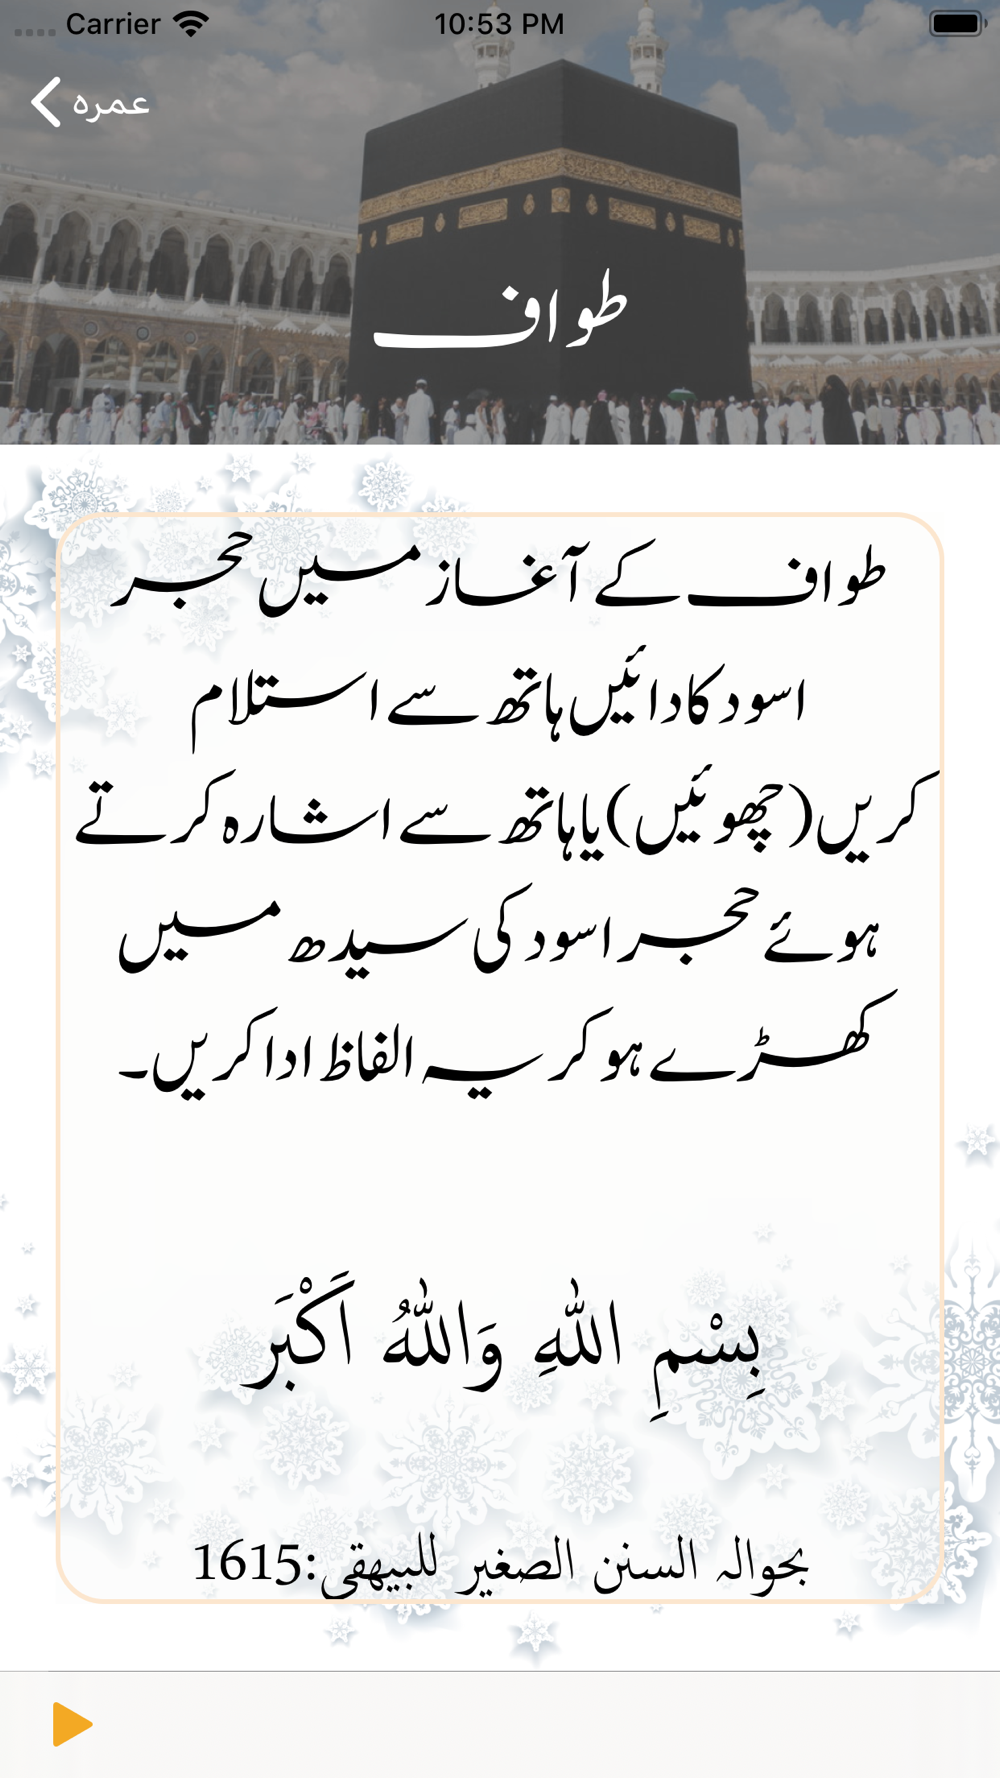 Carrier
10:53 PM
عمرہ
طواف
طواف کے آغاز میں حجر
اسود کا دائیں ہاتھ سے استلام
کریں (چھوئیں) یا ہاتھ سے اشارہ کرتے
ہوئے حجر اسود کی سیدھ میں
کھڑے ہو کر یہ الفاظ ادا کریں۔
بِسْمِ اللّٰهِ وَاللّٰهُ اَكْبَر
بحوالہ السنن الصغير للبيهقى:1615